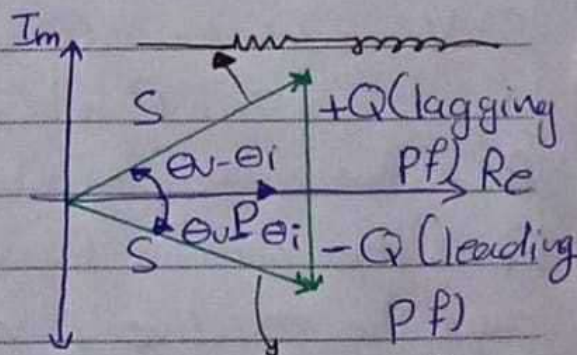 Im
S
+Q(lagging
θv-θi
pf) Re
P
θv θi
S
-Q (leading
pf)